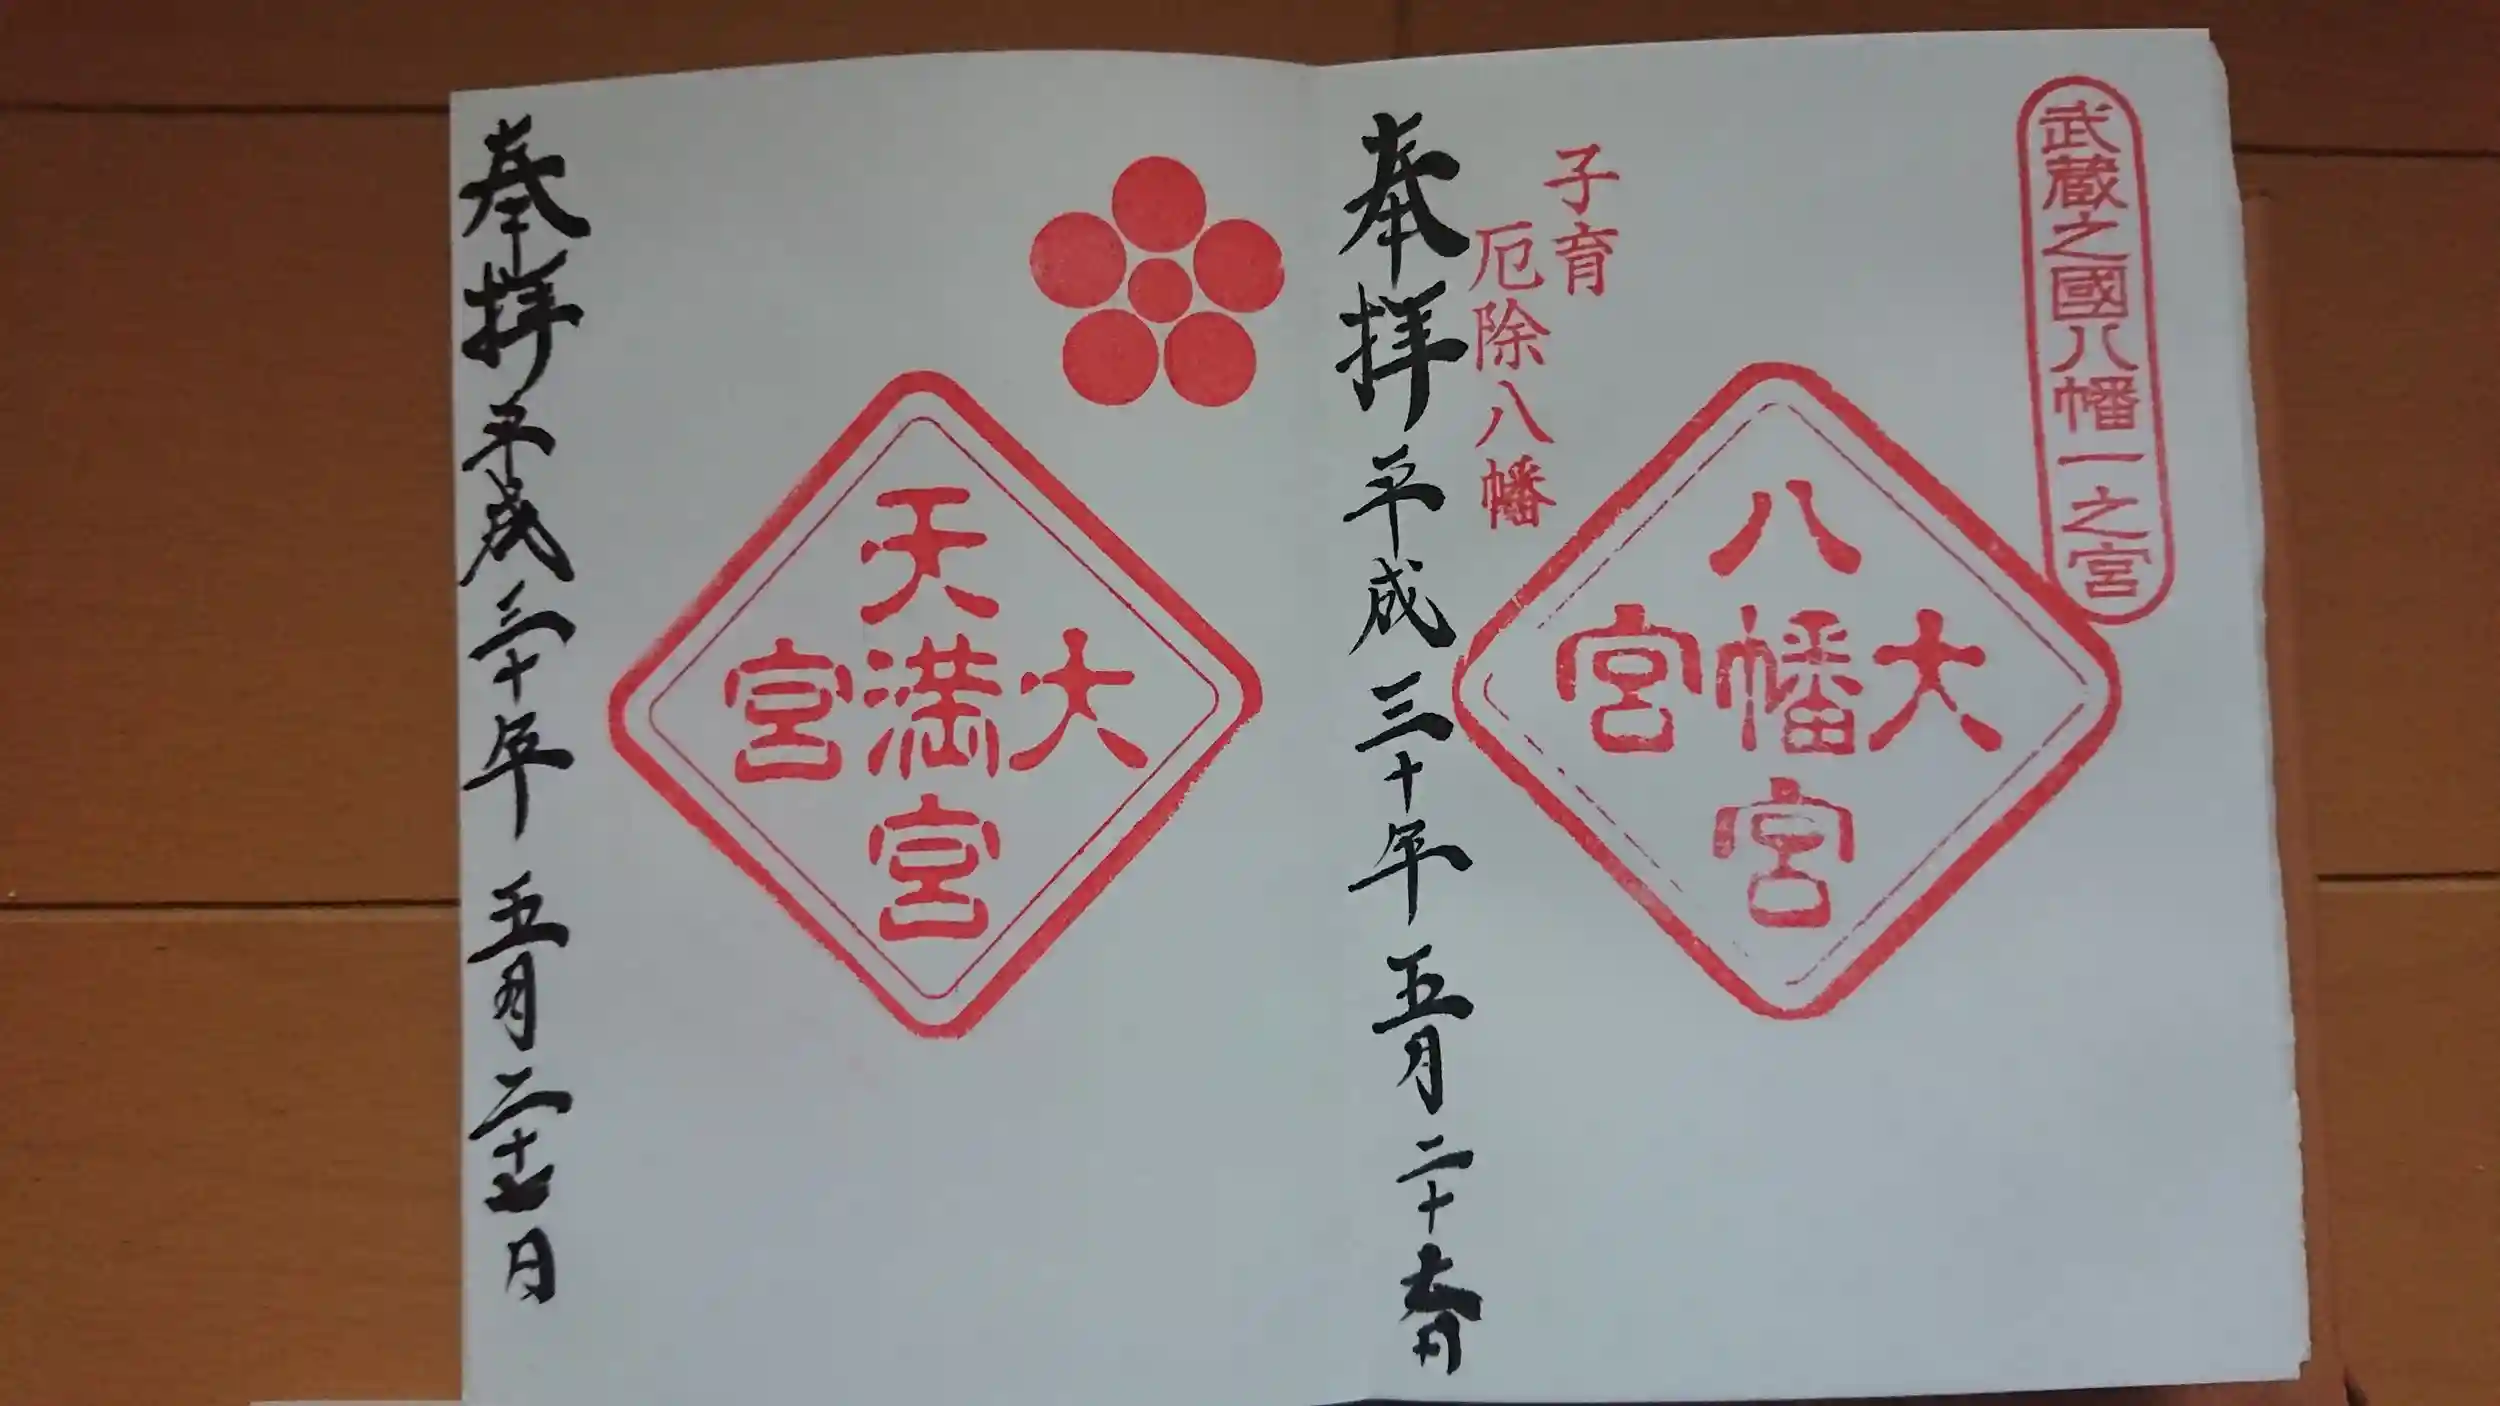 武蔵之國八幡一之宮
大宮
八幡宮
子育
厄除八幡
奉拝 平成三十年 五月二十日
大宮
天満宮
奉拝 平成三十年 五月二十日